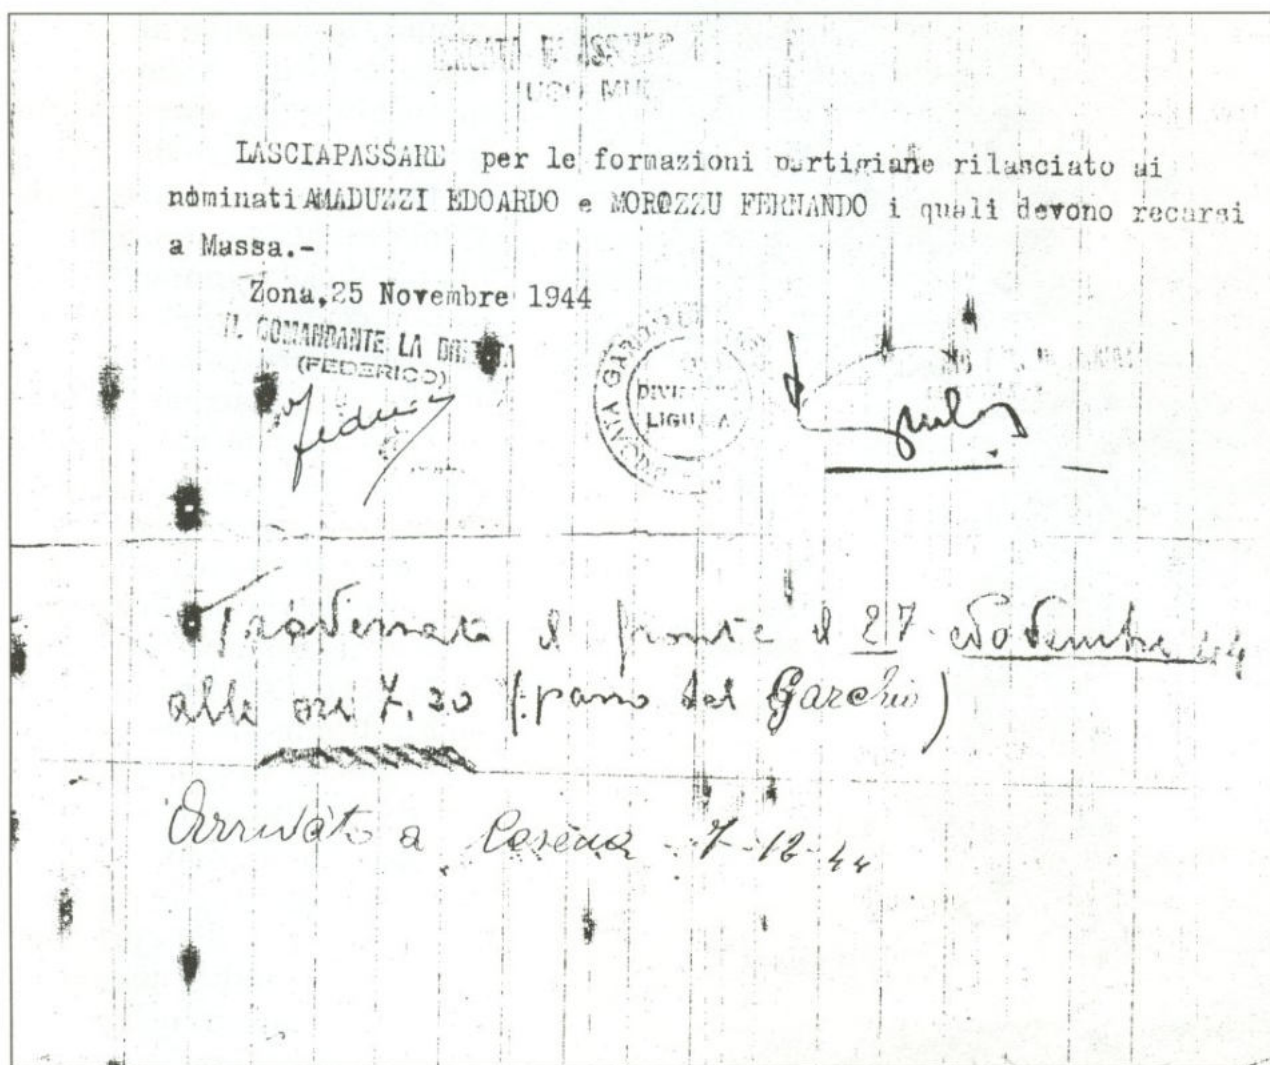 LASCIAPASSARE per le formazioni partigiane rilasciato ai
nominati AMADUZZI EDOARDO e MOROZZU FERNANDO i quali devono recarsi
a Massa.-
Zona,25 Novembre 1944
IL COMANDANTE LA
(FEDERICO)
LIGU
Traversata il fronte il 27 Novembre 44
alle ore 7.20 (passo del Garchio)
Arrivato a Cesena 7-12-44